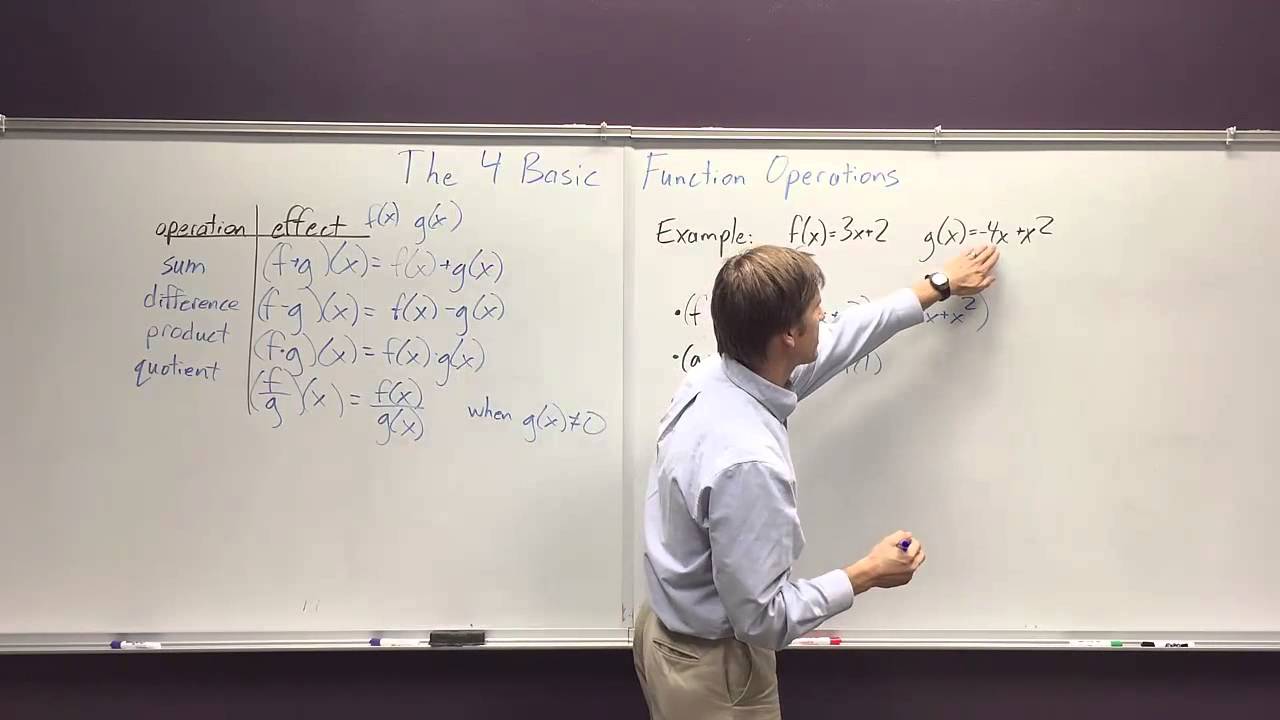 The 4 Basic Function Operations
operation effect f(x) g(x)
sum (f+g)(x) = f(x)+g(x)
difference (f-g)(x) = f(x)-g(x)
product (f·g)(x) = f(x)·g(x)
quotient (f/g)(x) = f(x)/g(x) when g(x)≠0
Example: f(x)=3x+2 g(x)=-4x+x²
•(f x+x²)
•(g (1)
EXPO